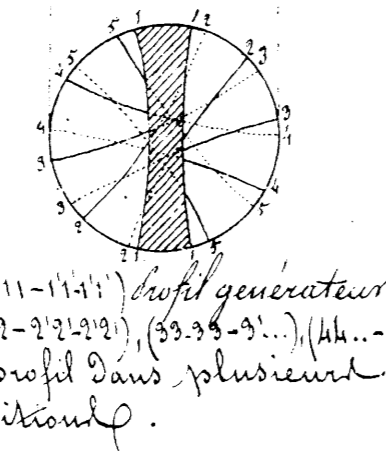 5 1 1 2
5 2 3
4
4 3
1
3
4
3 5
2
2 1 1 5
11-11-1'1'-1'1') Profil générateur
2-2'2'-2'2'), (33-33-3'...), (44..-
profil dans plusieurs
itions.